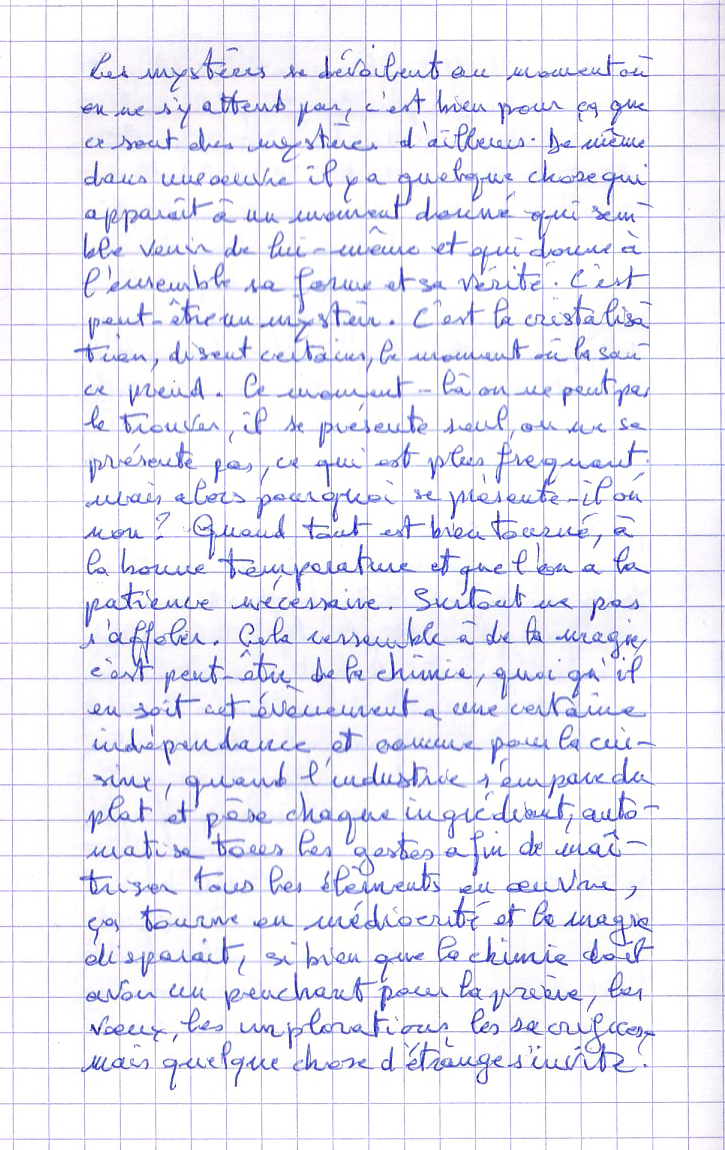 Les mystères se dévoilent au moment où
on ne s'y attend pas, c'est bien pour ça que
ce sont des mystères d'ailleurs. De même
dans une oeuvre il y a quelque chose qui
apparaît à un moment donné qui sem-
ble venir de lui-même et qui donne à
l'ensemble sa forme et sa vérité. C'est
peut-être un mystère. C'est la cristalisa
tion, disent certains, le moment où la sau
ce prend. Ce moment-là on ne peut pas
le trouver, il se présente seul, ou ne se
présente pas, ce qui est plus frequant.
mais alors pourquoi se présente-il ou
non? Quand tout est bien tourné, à
la bonne température et que l'on a la
patience nécessaire. Surtout ne pas
s'affoler. Cela ressemble à de la magie,
c'est peut-être de la chimie, quoi qu'il
en soit cet évènement a une certaine
indépendance et comme pour la cui-
sine, quand l'industrie s'empare du
plat et pèse chaque ingrédient, auto-
matise tous les gestes afin de maî-
triser tous les éléments en œuvre,
ça tourne en médiocrité et la magie
disparaît, si bien que la chimie doit
avoir un penchant pour la prière, les
vœux, les implorations, les sacrifices,
mais quelque chose d'étrange s'invite.